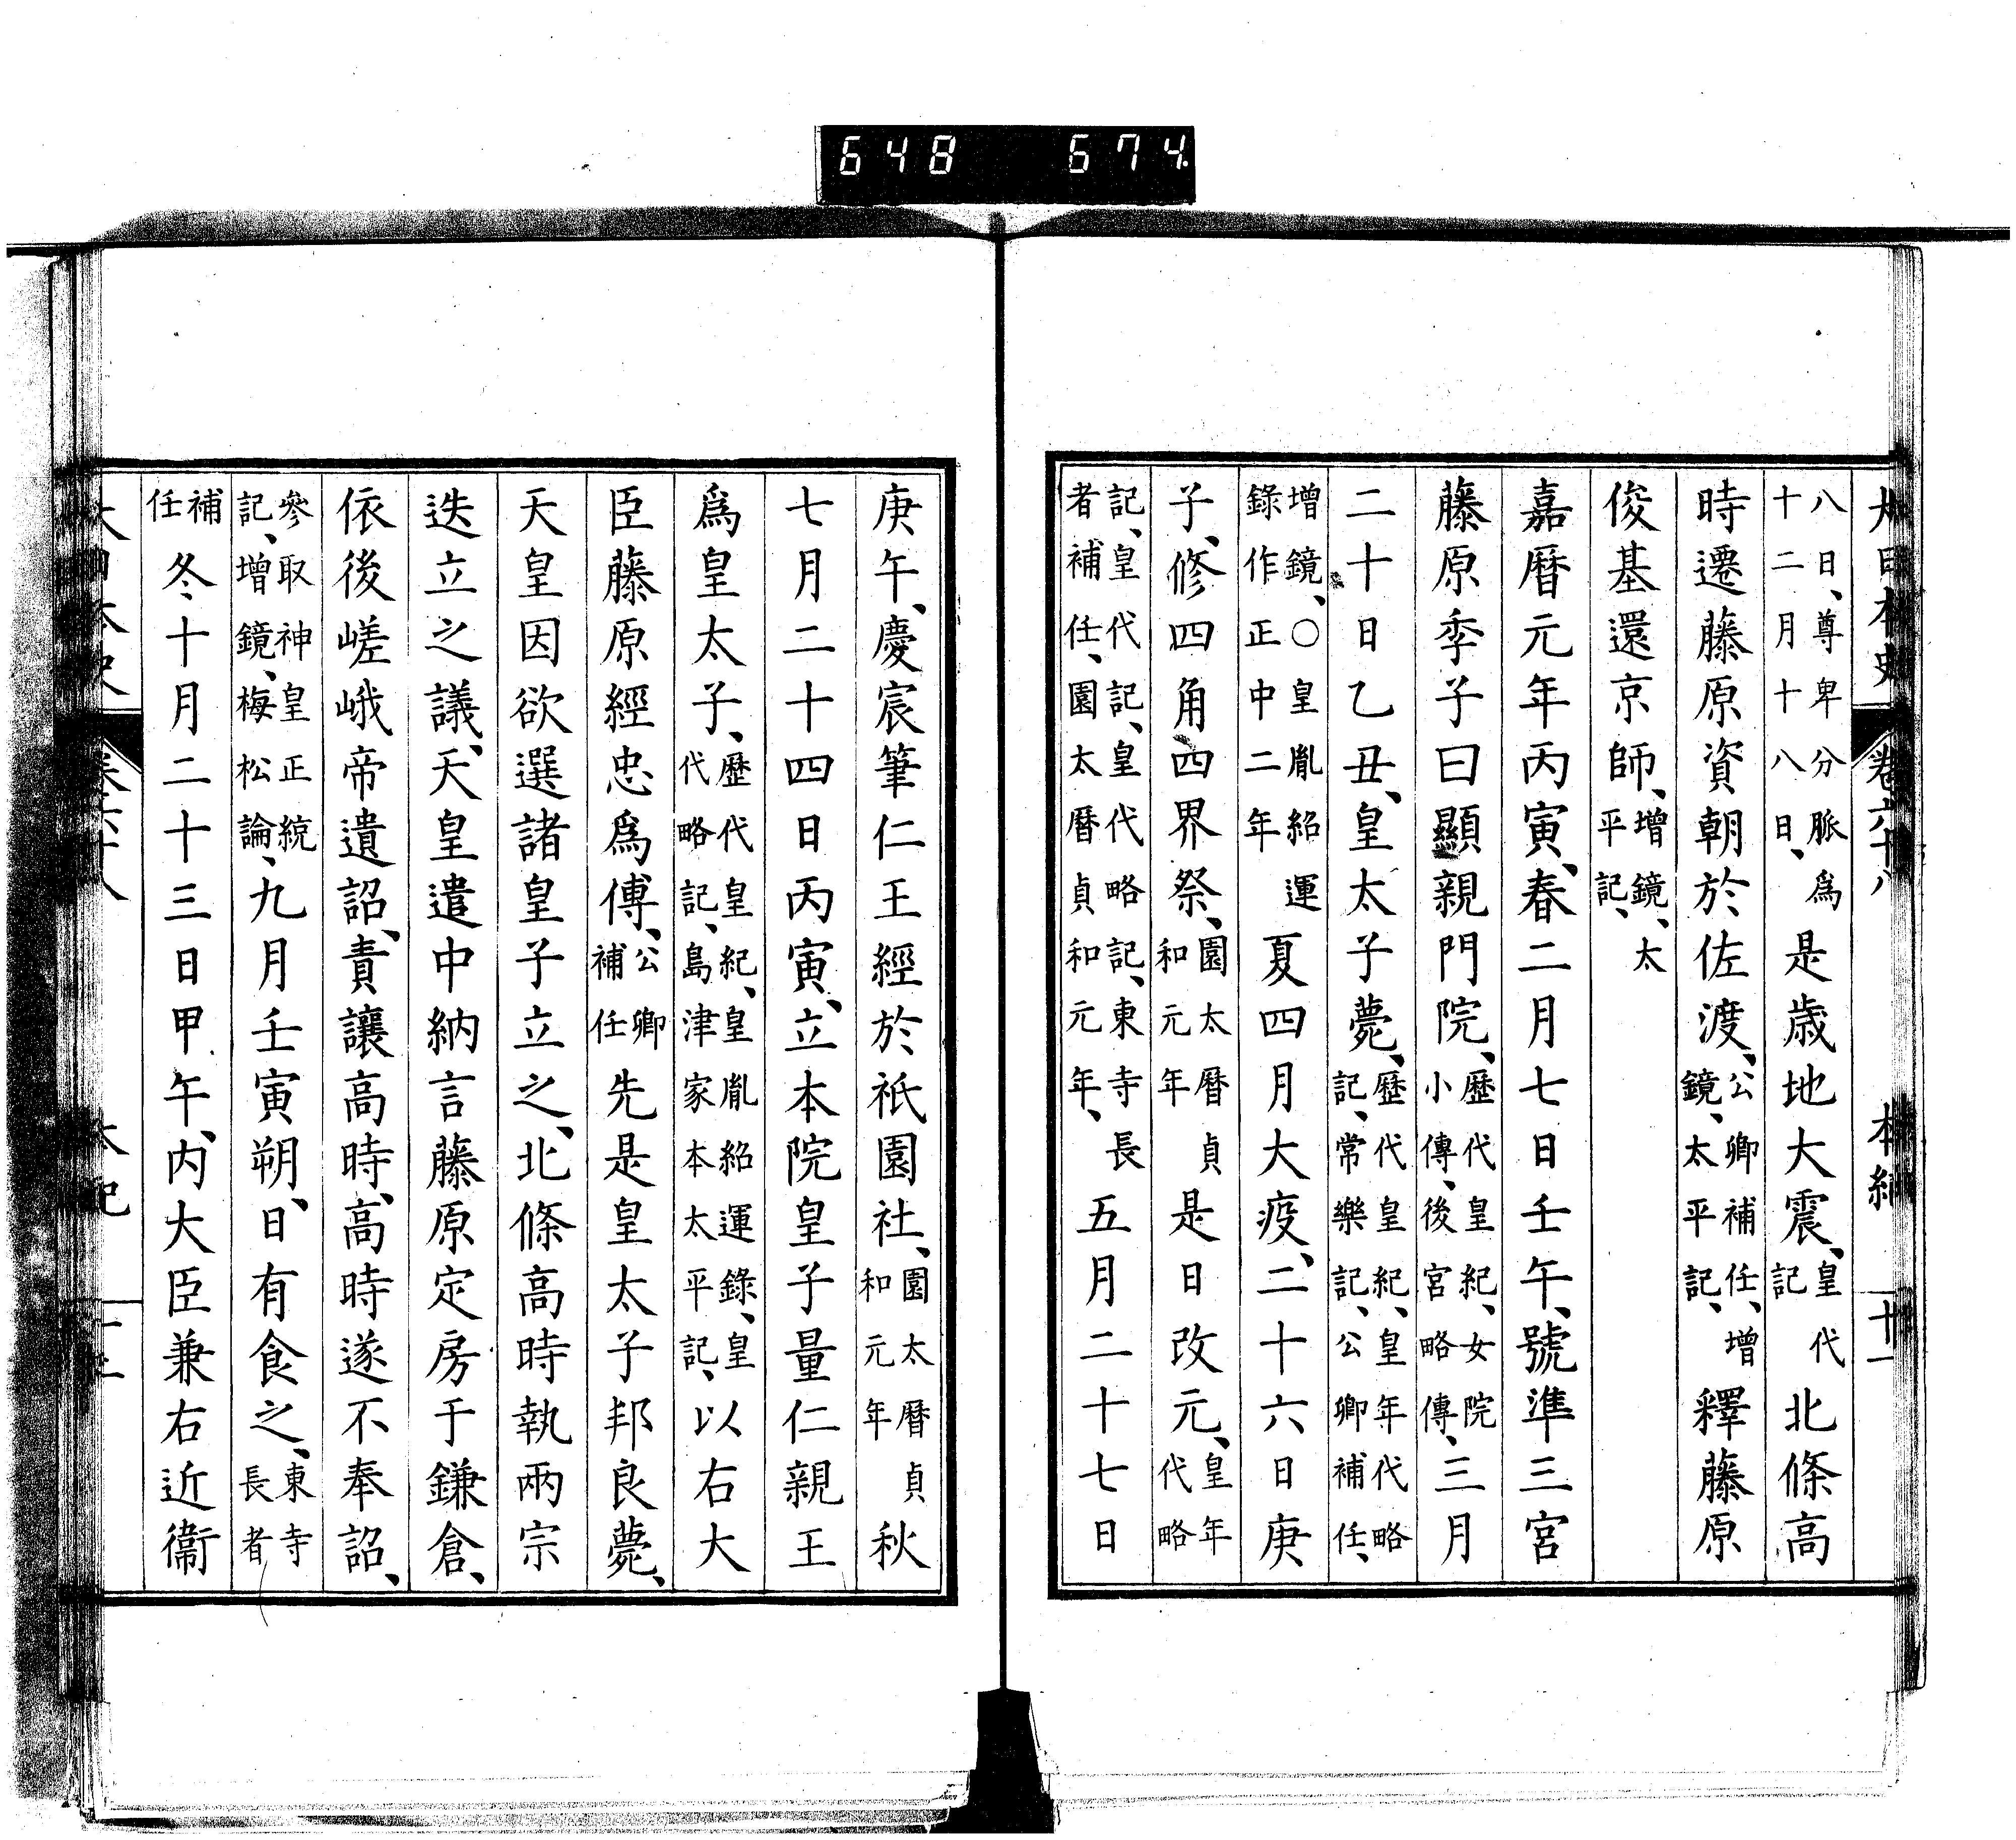 648 674
大日本史 卷六十八 本紀 十一
八日、尊卑分脈爲
十二月十八日、
是歳地大震、
皇代
記
北條高
時遷藤原資朝於佐渡、
公卿補任、增
鏡、太平記、
釋藤原
俊基還京師、
增鏡、太
平記、
嘉暦元年丙寅、春二月七日壬午、號準三宮
藤原季子曰顯親門院、
歷代皇紀、女院
小傳、後宮略傳、
三月
二十日乙丑、皇太子薨、
歷代皇紀、皇年代略
記、常樂記、公卿補任、
增鏡、○皇胤紹運
錄作正中二年
夏四月大疫、二十六日庚
子、修四角四界祭、
園太暦貞
和元年
是日改元、
皇年
代略
記、皇代記、皇代略記、東寺長
者補任、園太暦貞和元年、
五月二十七日
庚午、慶宸筆仁王經於祇園社、
園太暦貞
和元年
秋
七月二十四日丙寅、立本院皇子量仁親王
爲皇太子、
歷代皇紀、皇胤紹運錄、皇
代略記、島津家本太平記、
以右大
臣藤原經忠爲傅、
公卿
補任
先是皇太子邦良薨、
天皇因欲選諸皇子立之、北條高時執兩宗
迭立之議、天皇遣中納言藤原定房于鎌倉、
依後嵯峨帝遺詔、責讓高時、高時遂不奉詔、
參取神皇正統
記、增鏡、梅松論、
九月壬寅朔、日有食之、
東寺
長者
補
任
冬十月二十三日甲午、内大臣兼右近衞